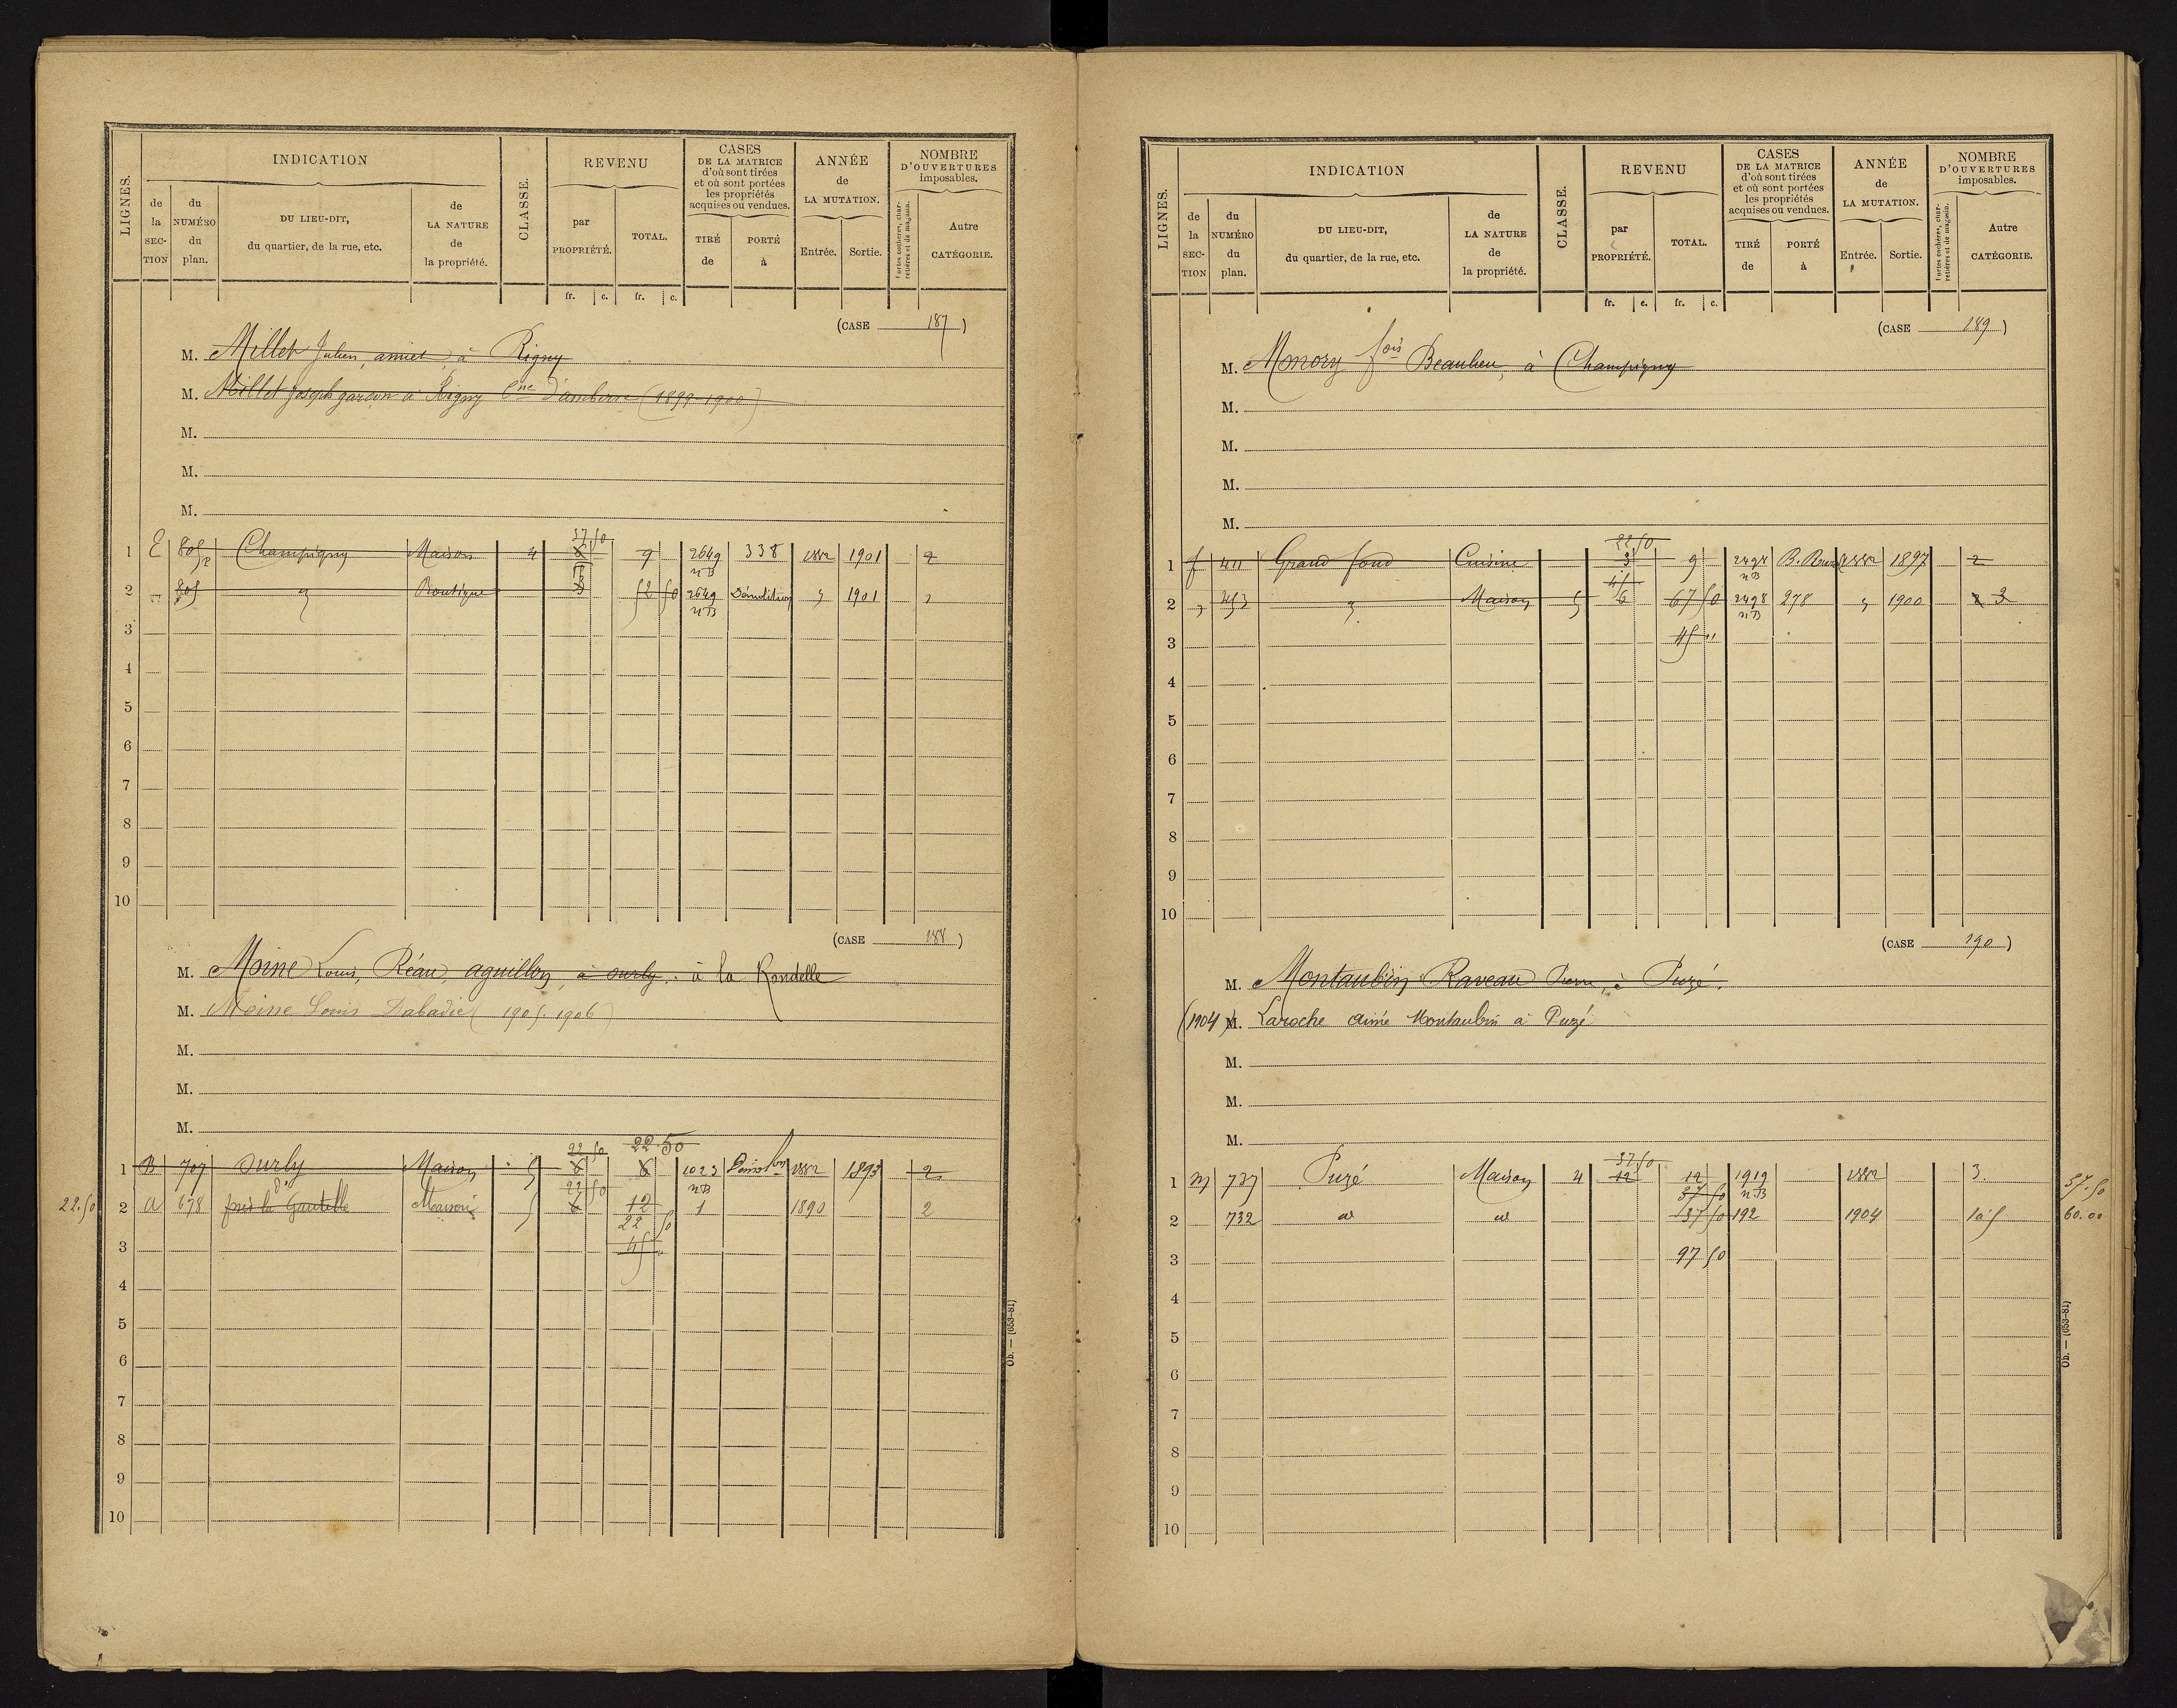 LIGNES. INDICATION CLASSE. REVENU CASES DE LA MATRICE d'où sont tirées et où sont portées les propriétés acquises ou vendues. ANNÉE de LA MUTATION. NOMBRE D'OUVERTURES imposables.
de la SECTION du NUMÉRO du plan. DU LIEU-DIT, du quartier, de la rue, etc. de LA NATURE de la propriété. par PROPRIÉTÉ. TOTAL. TIRÉ de PORTÉ à Entrée. Sortie. Portes cochères, charretières et de magasin. Autre CATÉGORIE.
fr. c. fr. c.
(CASE 187)
M. Millet Julien, amiet, à Rigny
M. Millet Joseph garçon à Rigny Cne d'amberre (1899-1900)
M.
M.
M.
37 50
1 E 805 Champigny Maison 4 6 9 2649 338 1882 1901 2
n B
2 " 805 " Boutique 3 52 50 2649 Démolition " 1901 1
n B
3
4
5
6
7
8
9
10
(CASE 188)
M. Moine Louis, Réau, aguillon, à Surly. à la Rondelle
M. Moine Louis Dabadie (1905.1906)
M.
M.
M.
22 50 22.50
1 B 707 Surly Maison 5 6 6 1023 Démolon 1882 1893 2
22 50 n B
22.50 2 A 678 près la Gautelle Maison 5 6 12 1 1890 2
22 50
3 45 "
4
5
6
7
8
9
10
Ob. — (653-81)
LIGNES. INDICATION CLASSE. REVENU CASES DE LA MATRICE d'où sont tirées et où sont portées les propriétés acquises ou vendues. ANNÉE de LA MUTATION. NOMBRE D'OUVERTURES imposables.
de la SECTION du NUMÉRO du plan. DU LIEU-DIT, du quartier, de la rue, etc. de LA NATURE de la propriété. par PROPRIÉTÉ. TOTAL. TIRÉ de PORTÉ à Entrée. Sortie. Portes cochères, charretières et de magasin. Autre CATÉGORIE.
fr. c. fr. c.
(CASE 189)
M. Monory fois Beaulieu, à Champigny
M.
M.
M.
M.
22 50
1 f 411 Grand fond Cuisine 3 9 2498 B. Rur 1882 1897 2
45 n B
2 " 453 " Maison 5 6 67 50 2498 278 " 1900 2 3
n B
3 45 "
4
5
6
7
8
9
10
(CASE 190)
M. Montaubin Raveau Pierre, à Puzé.
(1904) M. Laroche Aimé Montaubin à Puzé
M.
M.
M.
37 50
1 M 737 Puzé Maison 4 12 12 1919 1882 3. 37.50
37 50 n B
2 732 d° d° 37 50 192 1904 1 à 5 60.00
3 97 50
4
5
6
7
8
9
10
Ob. — (653-81)